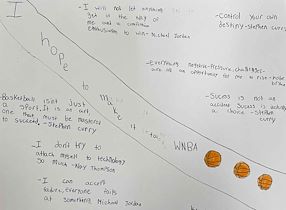 I
hope
to
make
it
to
WNBA
- I will not let anything
get in the way
of me and
enthusiasm to win - Michael Jordan
- Control your own
destiny - stephen curry
- Everything negative - pressure, challenges -
are all an opportunity for me to rise - kobe
- Sucess is not an
accident success is actually
a choice - Stephen
curry
- Basketball isnt Just
a sport. It is an art
one that must be mastered
to succeed - Stephen
curry
- I don't try to
attach myself to technology
so much - Klay Thompson
- I can accept
failure, everyone fails
at something Michael Jordan